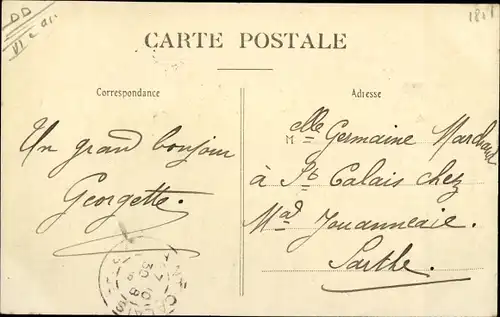 CARTE POSTALE
Correspondance
Adresse
Un grand bonjour
Georgette.
Melle Germaine Marchand
à St Calais chez
Mad Jouanneaie.
Sarthe.